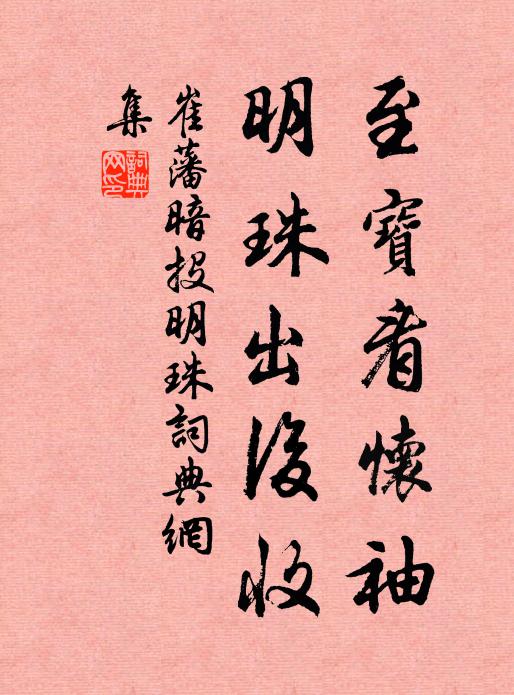 至寶看懷袖
明珠出後收
崔藩暗投明珠詞典網
集
詞典網印